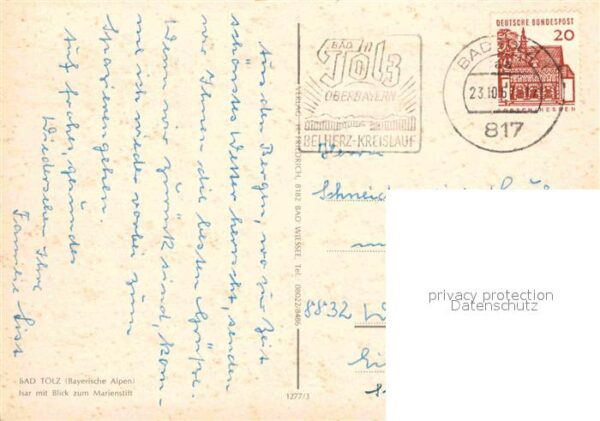 Aus den Bergen, wo zur Zeit
schönstes Wetter herrscht, senden
wir Ihnen die besten Grüße.
Wenn wir zurück sind, kom-
me ich wieder vorbei zum
Spazierengehen.
Auf frohes, gesundes
Wiedersehen Ihre
Familie
BAD TÖLZ (Bayerische Alpen)
Isar mit Blick zum Marienstift
1277/3
VERLAG FRIEDRICH, 8182 BAD WIESSEE, Tel. 08022/8486
BAD in
TÖLZ
OBERBAYERN
BEI HERZ-KREISLAUF
BAD TÖLZ
23.10.6
817
DEUTSCHE BUNDESPOST
20
Herrn
8832
privacy protection
Datenschutz